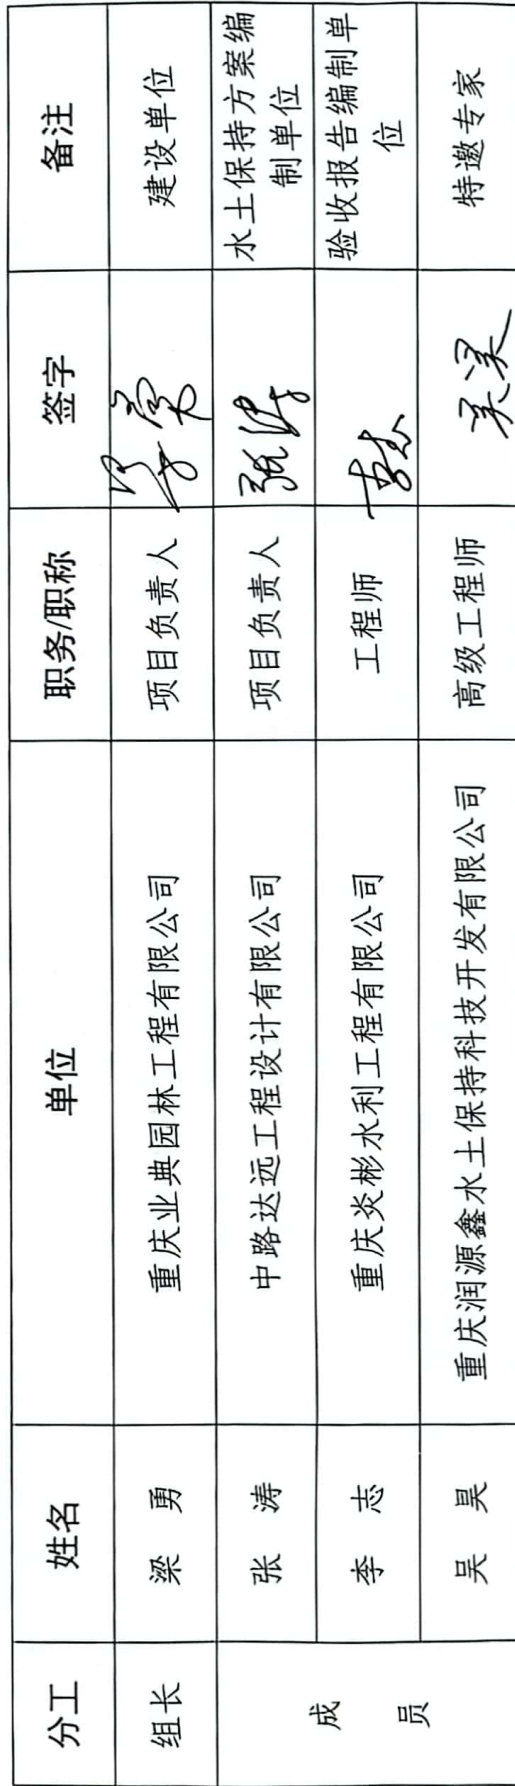 分工 姓名 单位 职务/职称 签字 备注
组长 梁 勇 重庆业典园林工程有限公司 项目负责人 建设单位
成
员
张 涛 中路达远工程设计有限公司 项目负责人 张涛 水土保持方案编
制单位
李 志 重庆炎彬水利工程有限公司 工程师 李志 验收报告编制单
位
吴 昊 重庆润源鑫水土保持科技开发有限公司 高级工程师 吴昊 特邀专家